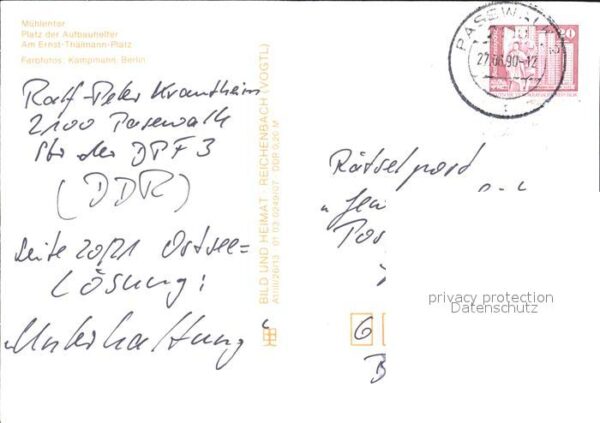 Mühlentor
Platz der Aufbauhelfer
Am Ernst-Thälmann-Platz
Farbfotos: Kampmann, Berlin
Ralf-Peter Krautheim
2100 Pasewalk
Str der DSF 3
(DDR)
Seite 20/21 Ostsee=
Lösung:
„Unterhaltung“
BILD UND HEIMAT · REICHENBACH (VOGTL)
A1/III/26/13 01 03 0249/07 DDR 0,20 M
PASEWALK
27.06.90-12
20
Rätselpost
privacy protection
Datenschutz
6
B